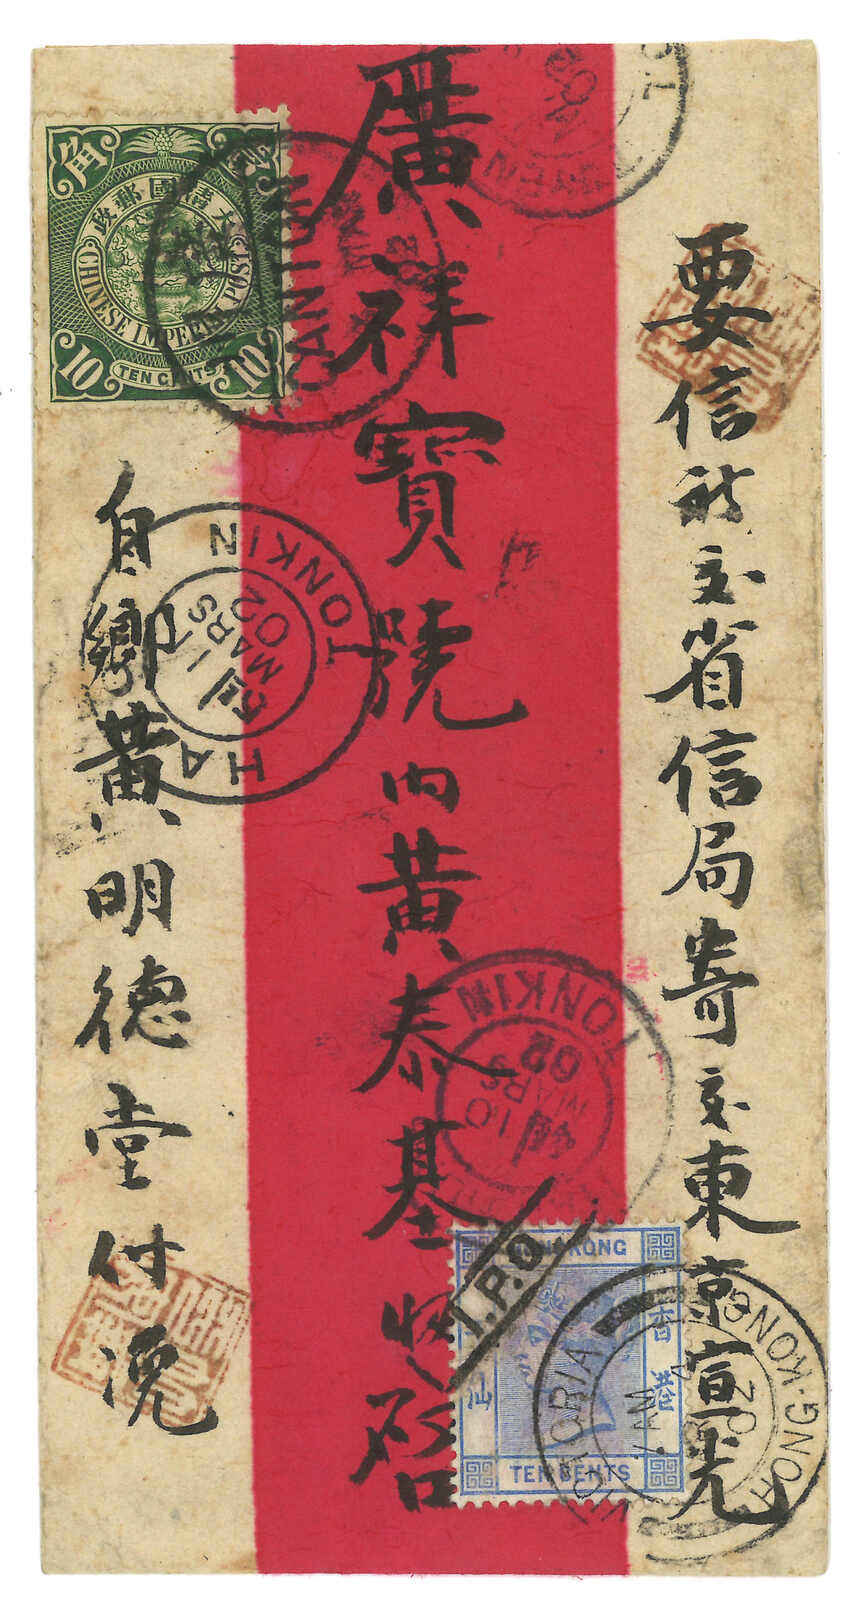 要信祈交省信局寄交東京宣光
廣祥寶號内黃泰基 啓
自鄉黃明德堂付
大清國郵政
角
CHINESE IMPERIAL POST
10
10
TEN CENTS
CANTON
TONKIN
5 MARS 02
TONKIN
10 MARS 02
HONG KONG
香港
TEN CENTS
I.P.O
VICTORIA
HONG-KONG
7 AM
02